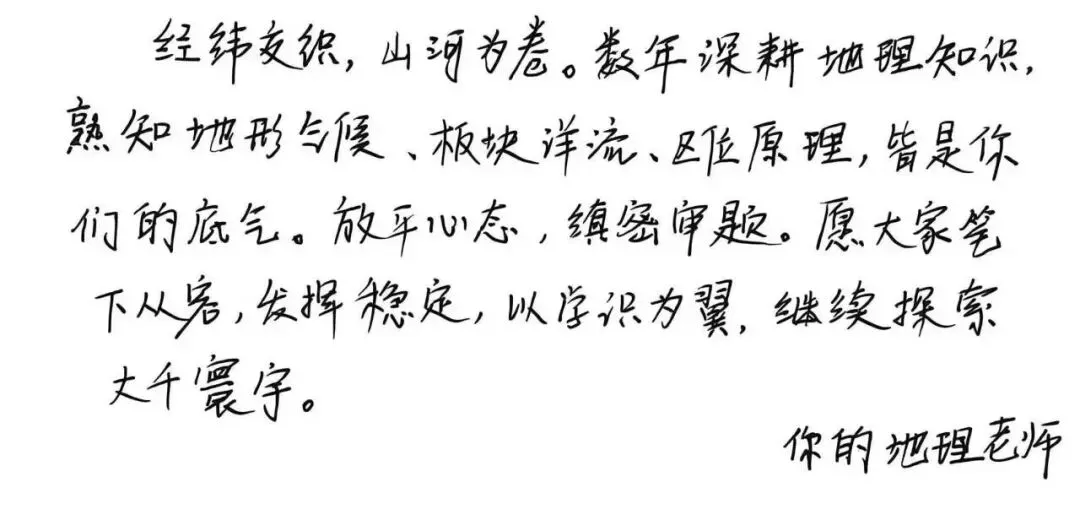 经纬交织，山河为卷。数年深耕地理知识，
熟知地形气候、板块洋流、区位原理，皆是你
们的底气。放平心态，缜密审题。愿大家笔
下从容，发挥稳定，以学识为翼，继续探索
大千寰宇。
你的地理老师